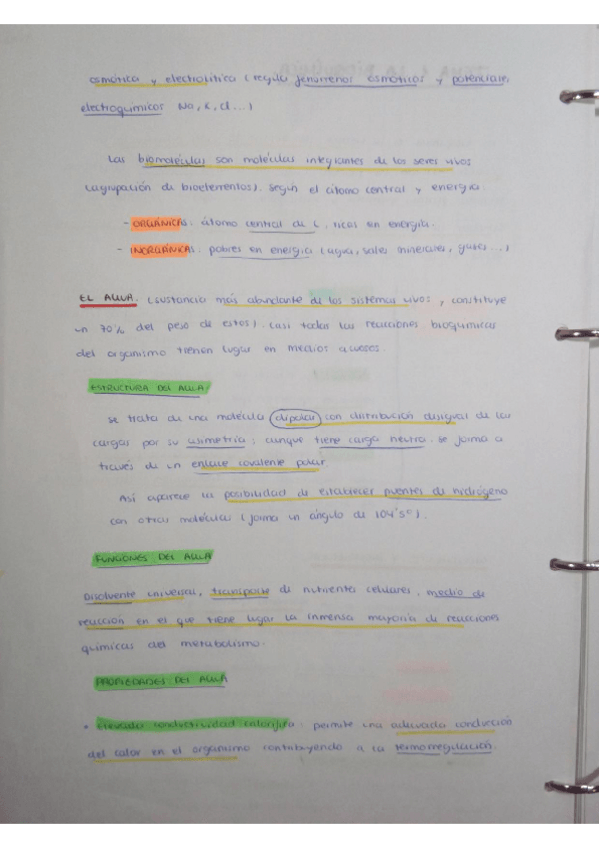 osmótica y electrolítica (regula fenómenos osmóticos y potenciales
electroquímicos Na, K, Cl ...)
Las biomoléculas son moléculas integrantes de los seres vivos
(agrupación de bioelementos). Según el átomo central y energía.
- ORGÁNICAS: átomo central de C, ricas en energía.
- INORGÁNICAS: pobres en energía (agua, sales minerales, gases ...)
EL AGUA. (sustancia más abundante de los sistemas vivos y constituye
un 70% del peso de estos). Casi todas las reacciones bioquímicas
del organismo tienen lugar en medios acuosos.
ESTRUCTURA DEL AGUA
Se trata de una molécula dipolar con distribución desigual de las
cargas por su asimetría; aunque tiene carga neutra. Se forma a
través de un enlace covalente polar.
Así aparece la posibilidad de establecer puentes de hidrógeno
con otras moléculas (forma un ángulo de 104'5º).
FUNCIONES DEL AGUA
Disolvente universal, transporte de nutrientes celulares, medio de
reacción en el que tiene lugar la inmensa mayoría de reacciones
químicas del metabolismo.
PROPIEDADES DEL AGUA
• Elevada conductividad calorífica: permite una adecuada conducción
del calor en el organismo contribuyendo a la termorregulación.